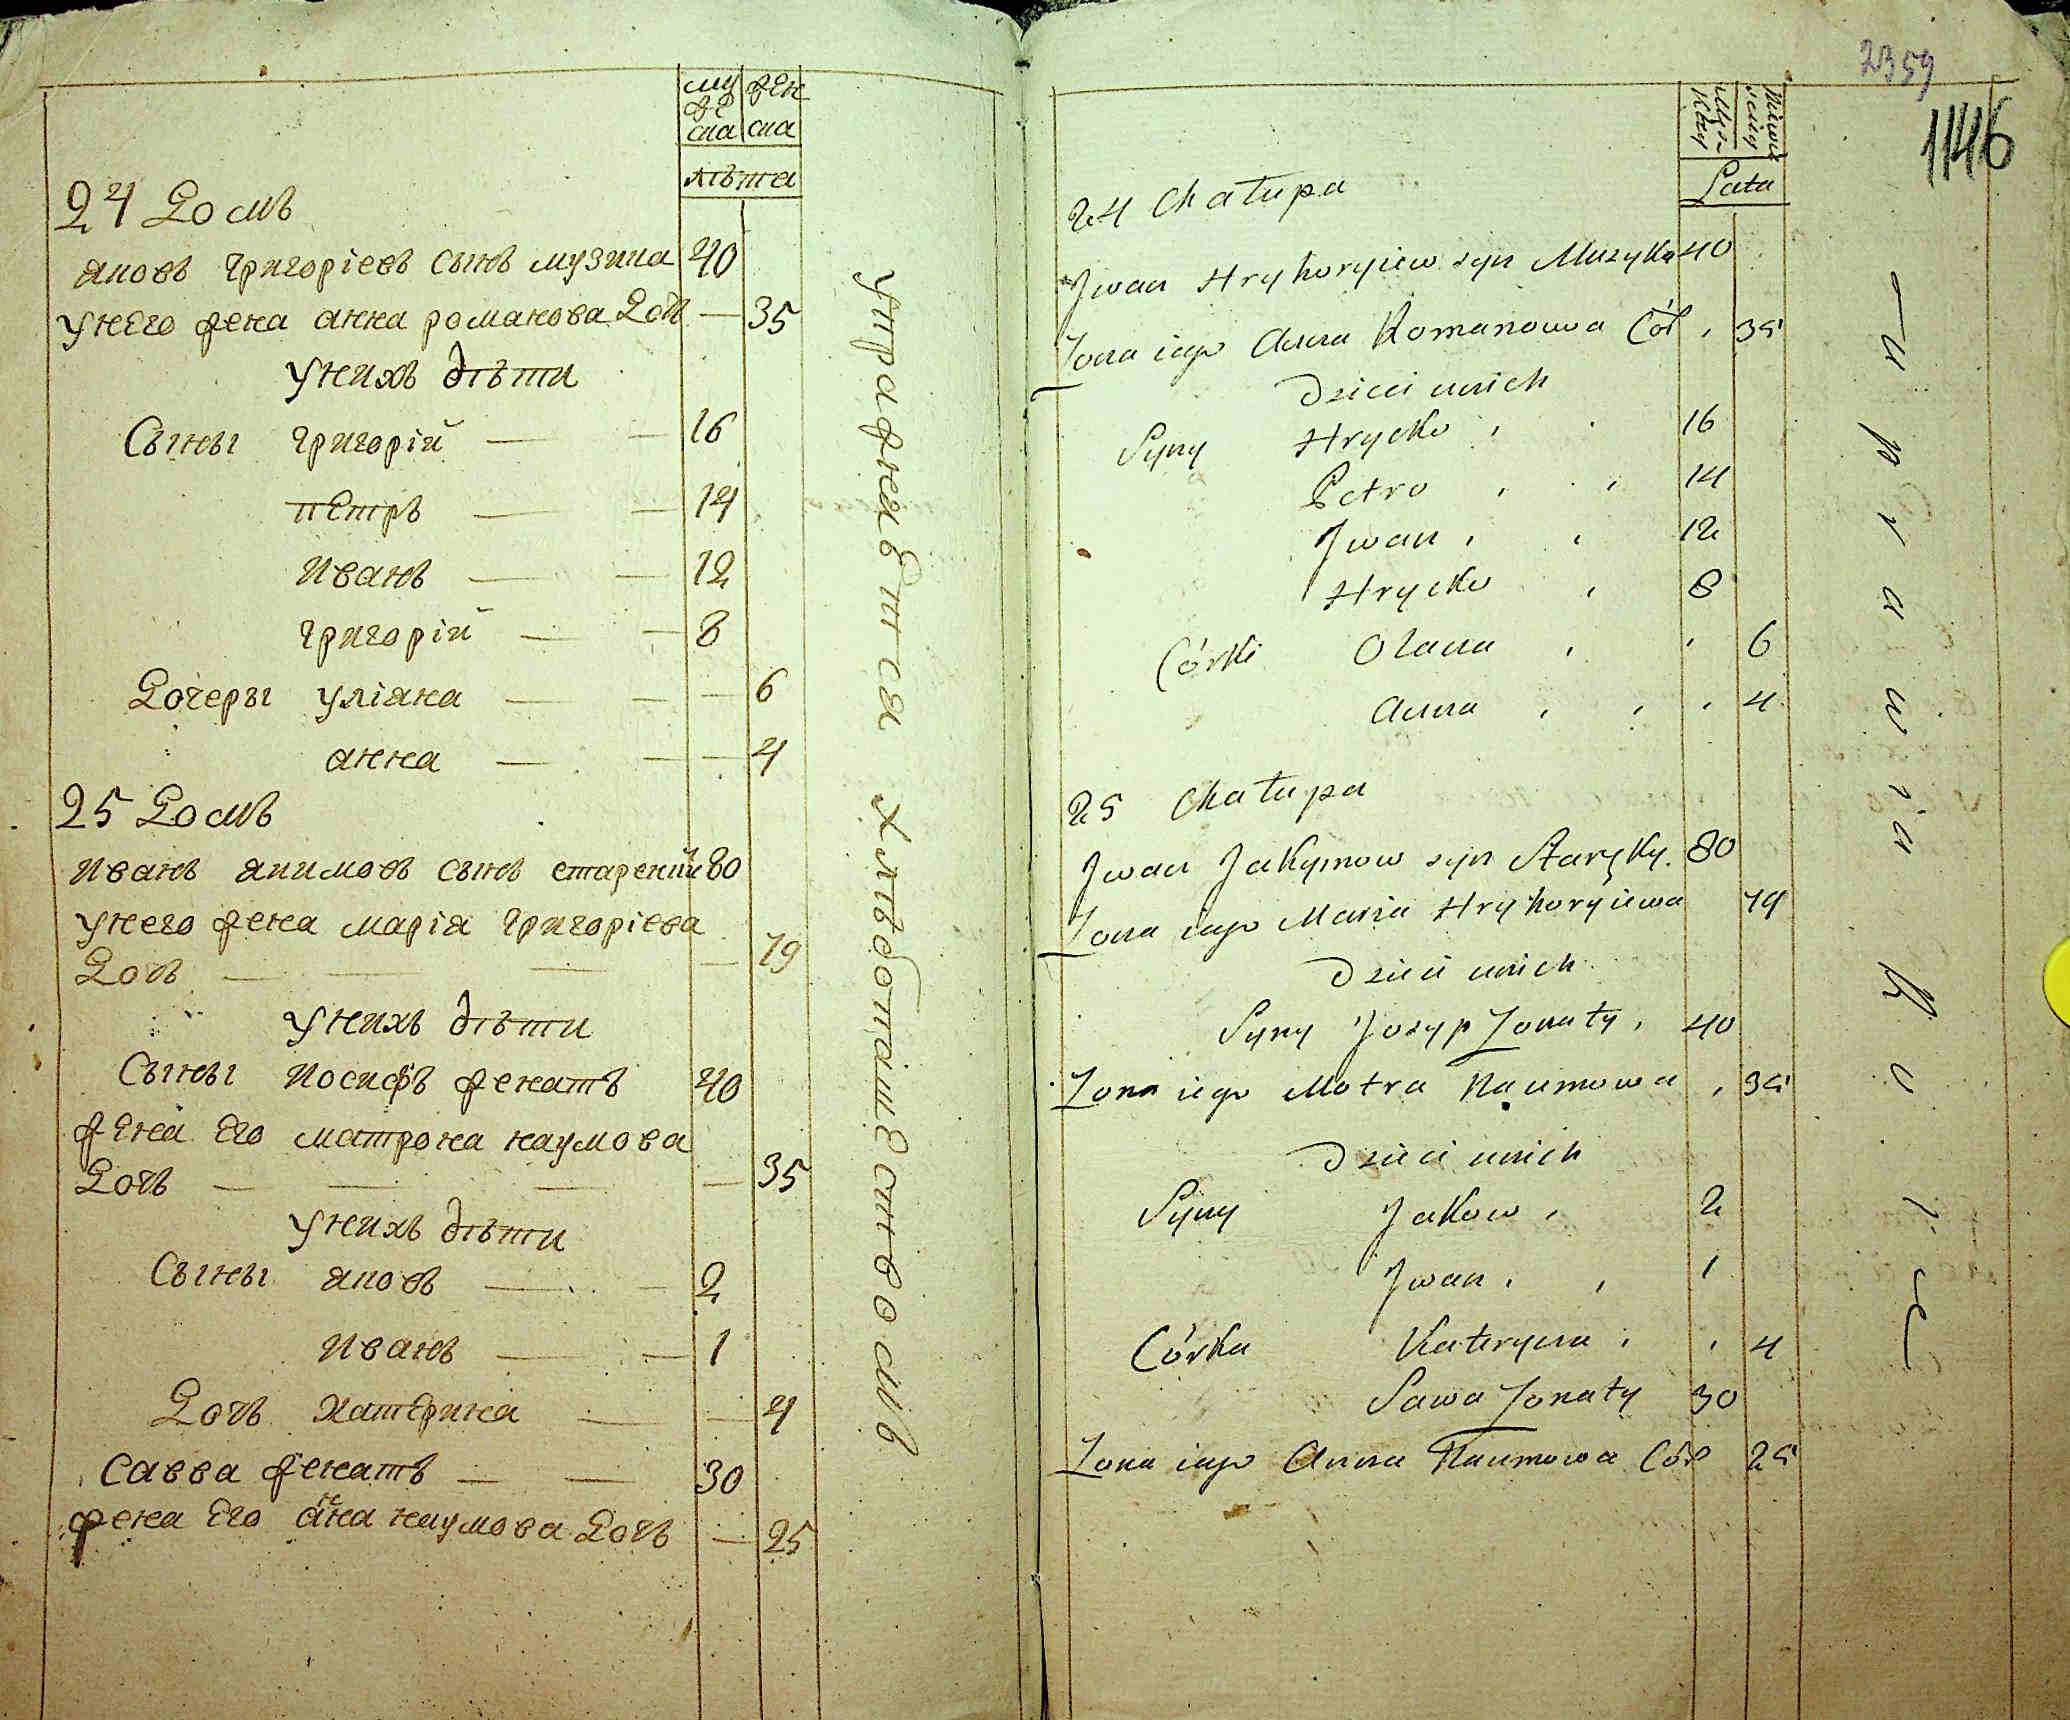 му
же
ска
жен
ска
лѣта
24 Домъ
яковъ григоріевъ сынъ музика 40
унего жена анна романова Дочь — 35
Унихъ дѣти
Сыны григорій — — 16
петръ — — 14
иванъ — — 12
григорій — — 8
Дочеры уліяна — — — 6
анна — — — 4
25 Домъ
иванъ якимовъ сынъ старекий 80
унего жена марія григоріева
Дочь — — — — 79
Унихъ дѣти
Сыны иосифъ женатъ 40
жена его матрона наумова
Дочь — — — — 35
Унихъ дѣти
Сыны яковъ — — 2
иванъ — — 1
Дочь катерина — — 4
Савва женатъ — — 30
жена его анна наумова Дочь — 25
упражняется хлѣбопашествомъ
2359
1146
Lata
24 Chałupa
Jwan Hryhoryiew syn Muzyka 40
Zona iego Anna Romanowa Cór 35
Dzieci unich
Syny Hrycko 16
Petro 14
Jwan 12
Hrycko 8
Córki Olana 6
Anna 4
25 Chałupa
Jwan Jakymow syn Staryky 80
Zona iego Maria Hryhoryiewa 79
Dzieci unich
Syny Jozyp Zonaty 40
Zona iego Motra Naumowa 35
Dzieci unich
Syny Jakow 2
Jwan 1
Córka Kateryna 4
Sawa Zonaty 30
Zona iego Anna Naumowa Cór 25